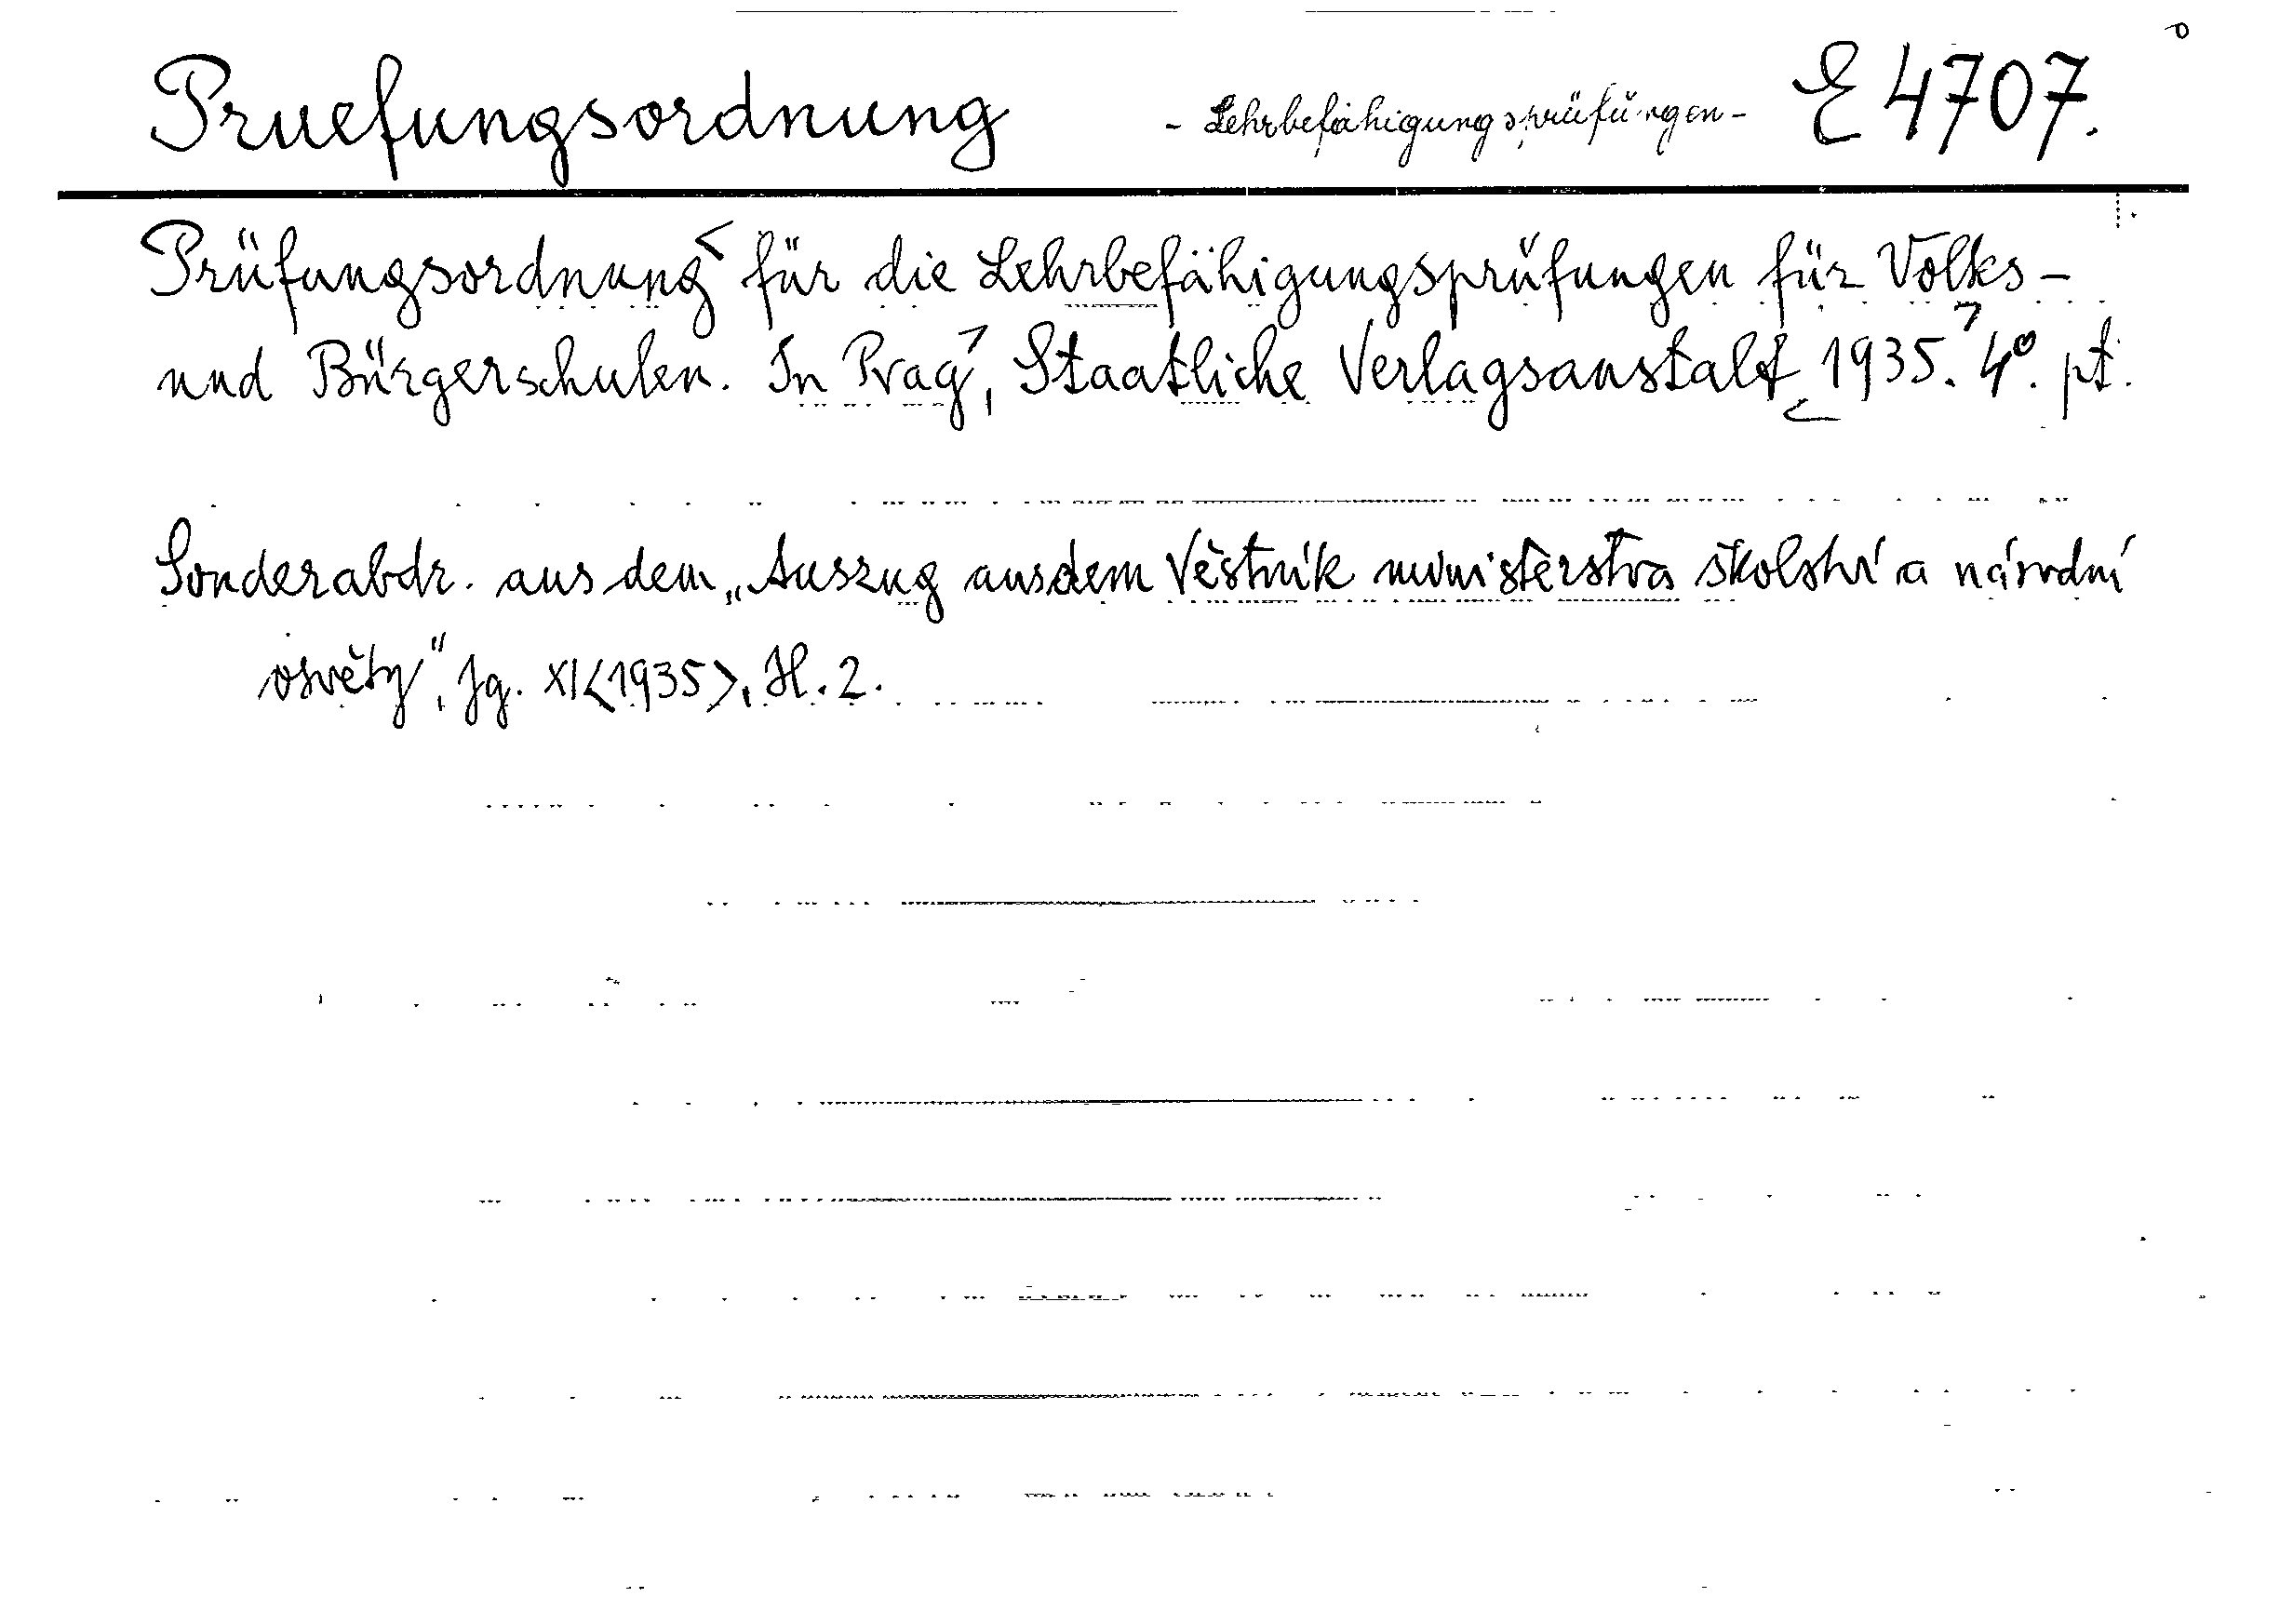 Pruefungsordnung - Lehrbefähigungsprüfungen - E 4707.
Prüfungsordnung für die Lehrbefähigungsprüfungen für Volks-
und Bürgerschulen. In Prag, Staatliche Verlagsanstalt 1935. 4°. pt.
Sonderabdr. aus dem „Auszug aus dem Věstník ministerstva školství a národní
osvěty", Jg. XI<1935>, H. 2.